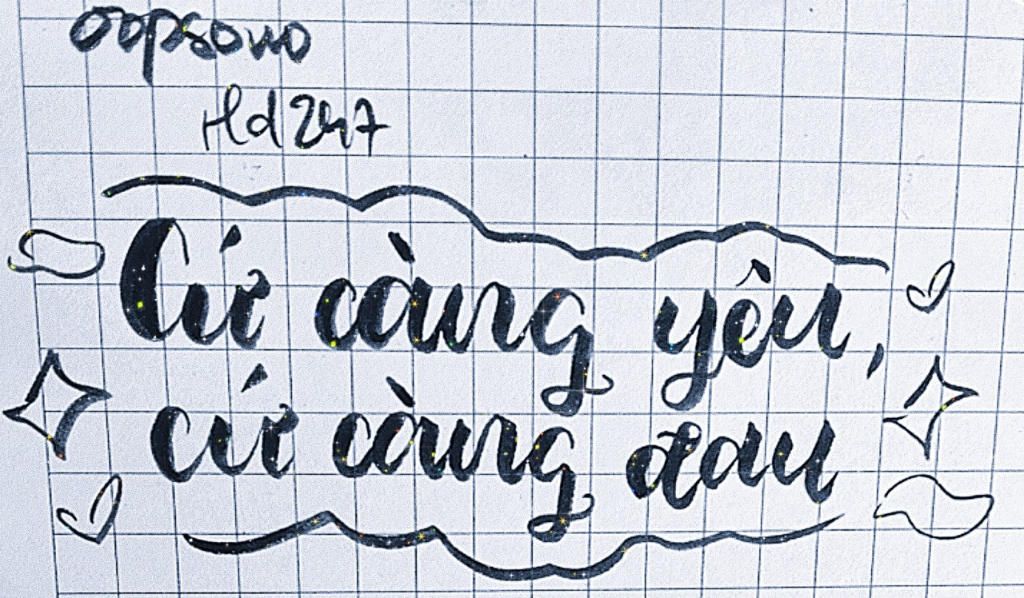 oopsouo
Hd247
Cứ càng yêu,
cứ càng đau